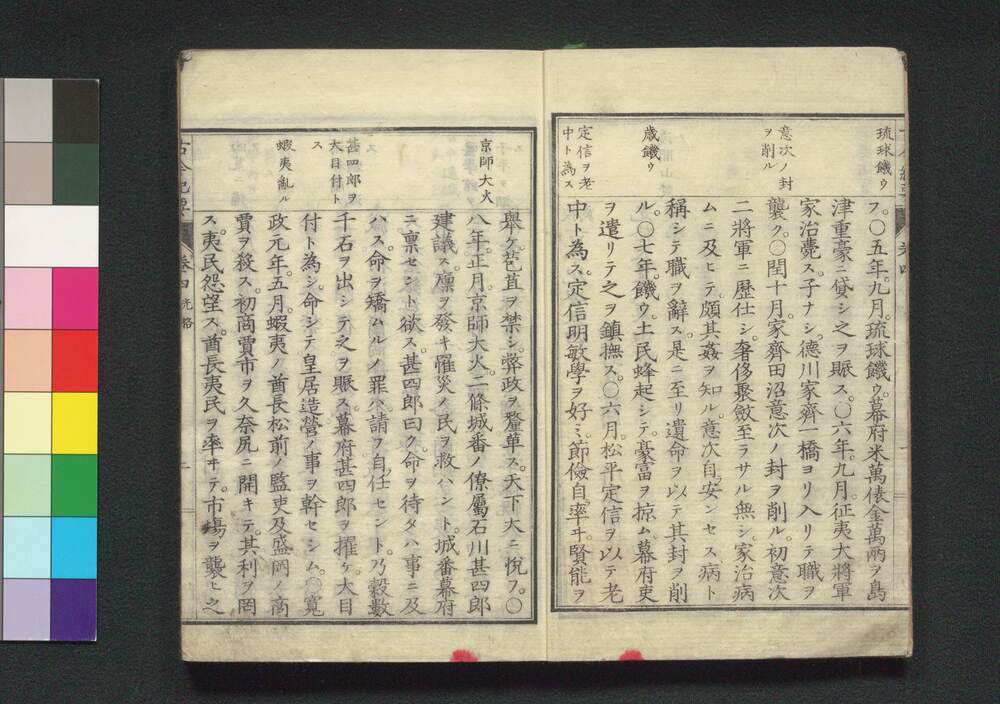 琉球饑ウ
意次ノ封
ヲ削ル
歳饑ウ
定信ヲ老
中ト為ス
フ。〇五年。九月。琉球饑ウ。幕府米萬俵金萬兩ヲ島
津重豪ニ貸シ之ヲ賑ス。〇六年。九月。征夷大將軍
家治薨ス。子ナシ。德川家齊一橋ヨリ入リテ職ヲ
襲ク。〇閏十月。家齊田沼意次ノ封ヲ削ル。初意次
二將軍ニ歷仕シ。奢侈聚斂至ラサル無シ。家治病
ムニ及ヒテ。頗其姦ヲ知ル。意次自安ンセス病ト
稱シテ職ヲ辭ス。是ニ至リ遺命ヲ以テ其封ヲ削
ル。〇七年。饑ウ。土民蜂起シテ。豪富ヲ掠ム。幕府吏
ヲ遣リテ之ヲ鎮撫ス。〇六月。松平定信ヲ以テ老
中ト為ス。定信明敏學ヲ好ミ。節儉自率ヰ。賢能ヲ
京師大火
甚四郎ヲ
大目付ト
ス
蝦夷亂ル
擧ケ。苞苴ヲ禁シ。弊政ヲ釐革ス。天下大ニ悅フ。〇
八年。正月。京師大火。二條城番ノ僚屬石川甚四郎
建議ス。廩ヲ發キ罹災ノ民ヲ救ハント。城番幕府
ニ禀セント欲ス。甚四郎曰ク。命ヲ待タハ事ニ及
ハス。命ヲ矯ムルノ罪ハ。請フ自任セント。乃穀數
千石ヲ出シテ之ヲ賑ス。幕府甚四郎ヲ擢ケ。大目
付ト為シ。命シテ皇居造營ノ事ヲ幹セシム。〇寬
政元年。五月。蝦夷ノ酋長松前ノ監吏及盛岡ノ商
賈ヲ殺ス。初商賈市ヲ久奈尻ニ開キテ。其利ヲ罔
ス。夷民怨望ス。酋長夷民ヲ率ヰテ。市場ヲ襲ヒ之
古今紀要
卷四 光格
二